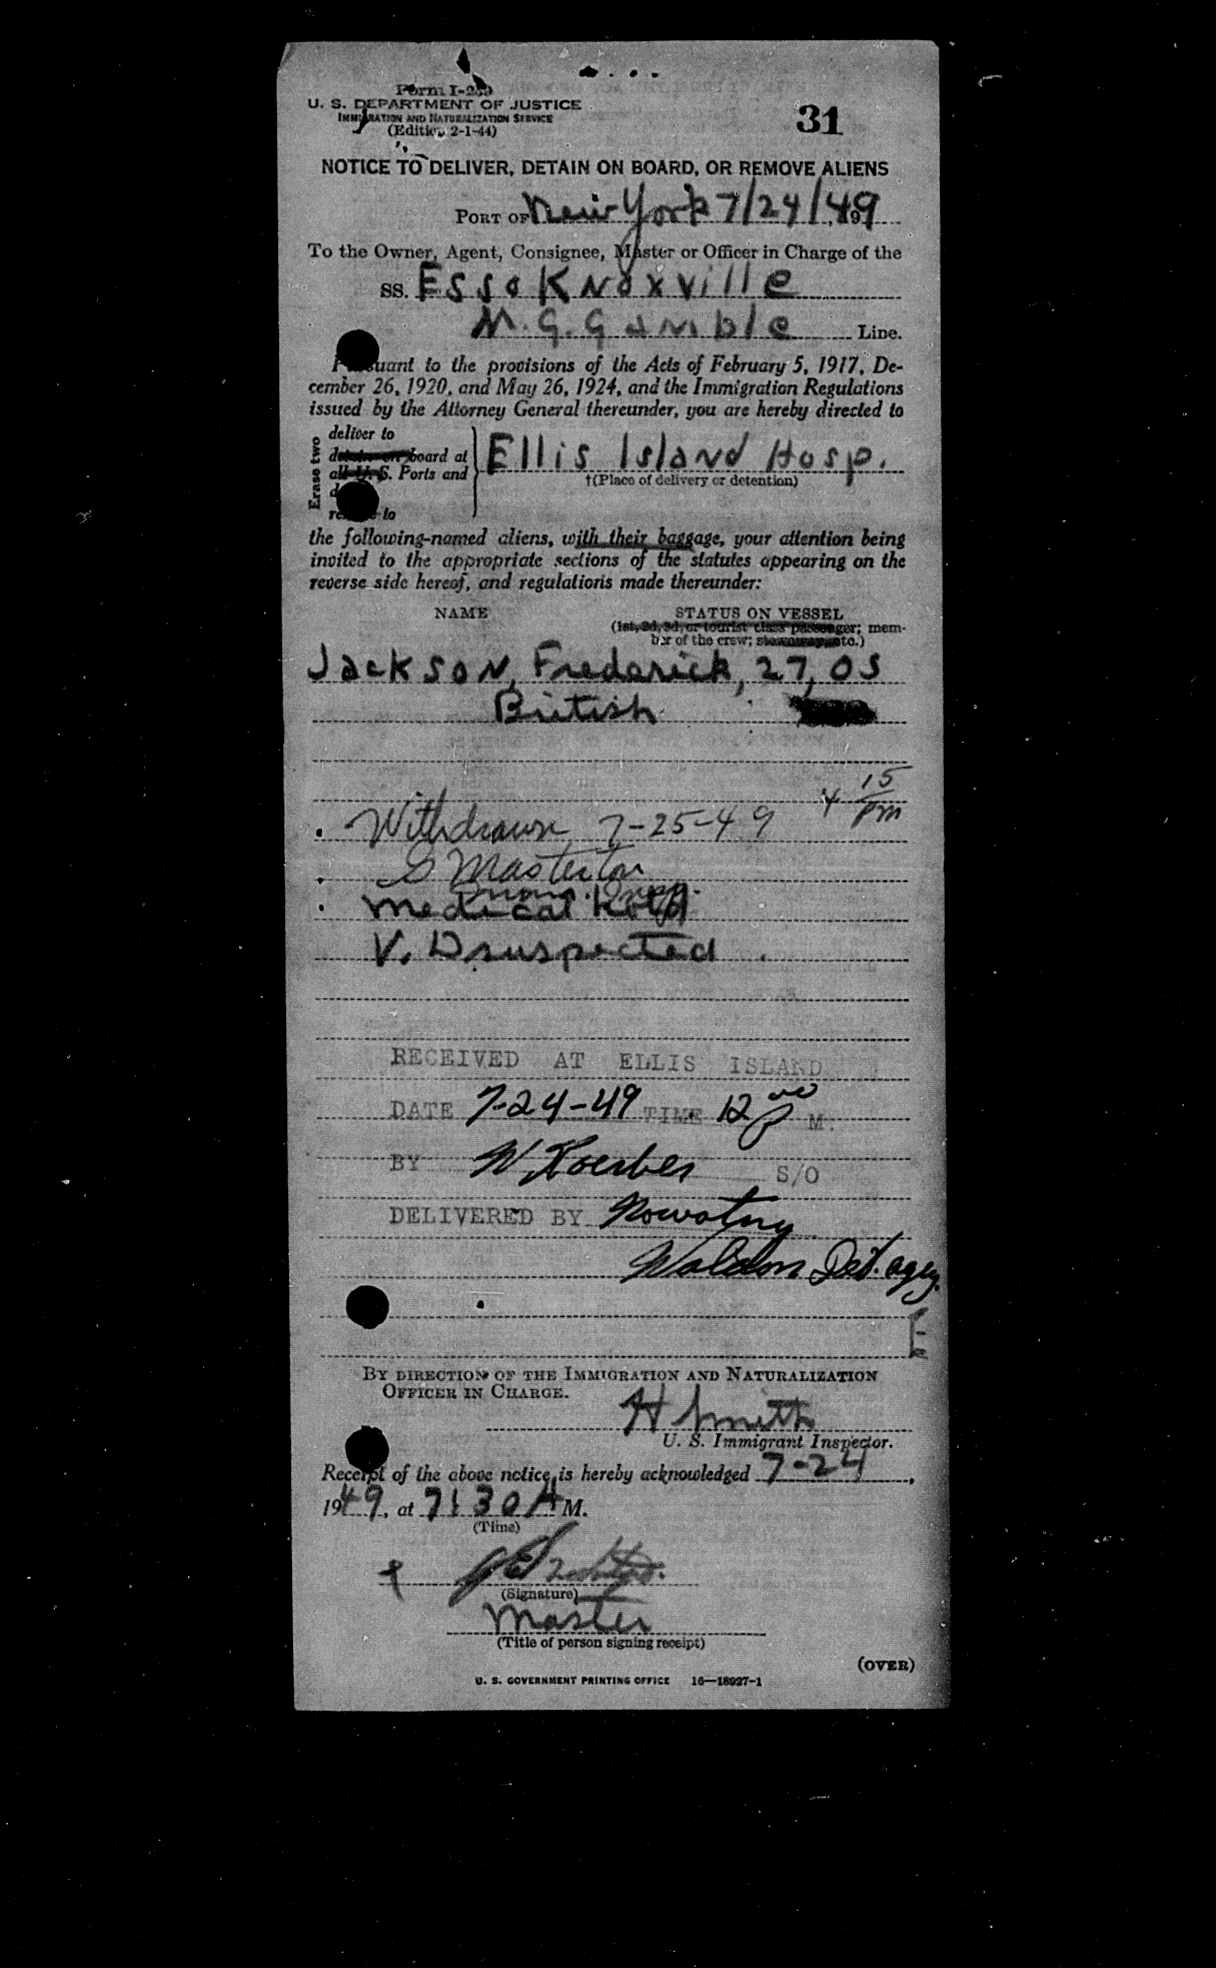 Form I-259
U. S. DEPARTMENT OF JUSTICE
IMMIGRATION AND NATURALIZATION SERVICE
(Edition 2-1-44)
31
NOTICE TO DELIVER, DETAIN ON BOARD, OR REMOVE ALIENS
PORT OF New York 7/24/49
To the Owner, Agent, Consignee, Master or Officer in Charge of the
SS. Esso Knoxville
M. G. Gamble Line.
Pursuant to the provisions of the Acts of February 5, 1917, De-
cember 26, 1920, and May 26, 1924, and the Immigration Regulations
issued by the Attorney General thereunder, you are hereby directed to
Erase two
deliver to
detain on board at
all U. S. Ports and
Ellis Island Hosp.
†(Place of delivery or detention)
to
the following-named aliens, with their baggage, your attention being
invited to the appropriate sections of the statutes appearing on the
reverse side hereof, and regulations made thereunder:
NAME STATUS ON VESSEL
(1st, 2d, 3d, or tourist class passenger; mem-
ber of the crew; stowaway, etc.)
Jackson, Frederick, 27, OS
British
4 15 pm
Withdrawn 7-25-49
G Masterton
Medical Hold
V. D suspected
RECEIVED AT ELLIS ISLAND
DATE 7-24-49 TIME 12 00 P M.
BY W Koerber S/O
DELIVERED BY Nowatny
Waldon Det. agcy.
BY DIRECTION OF THE IMMIGRATION AND NATURALIZATION
OFFICER IN CHARGE.
H Smith
U. S. Immigrant Inspector.
Receipt of the above notice is hereby acknowledged 7-24,
1949, at 7:30 A M.
(Time)
(Signature)
Master
(Title of person signing receipt)
(OVER)
U. S. GOVERNMENT PRINTING OFFICE 16—18927-1